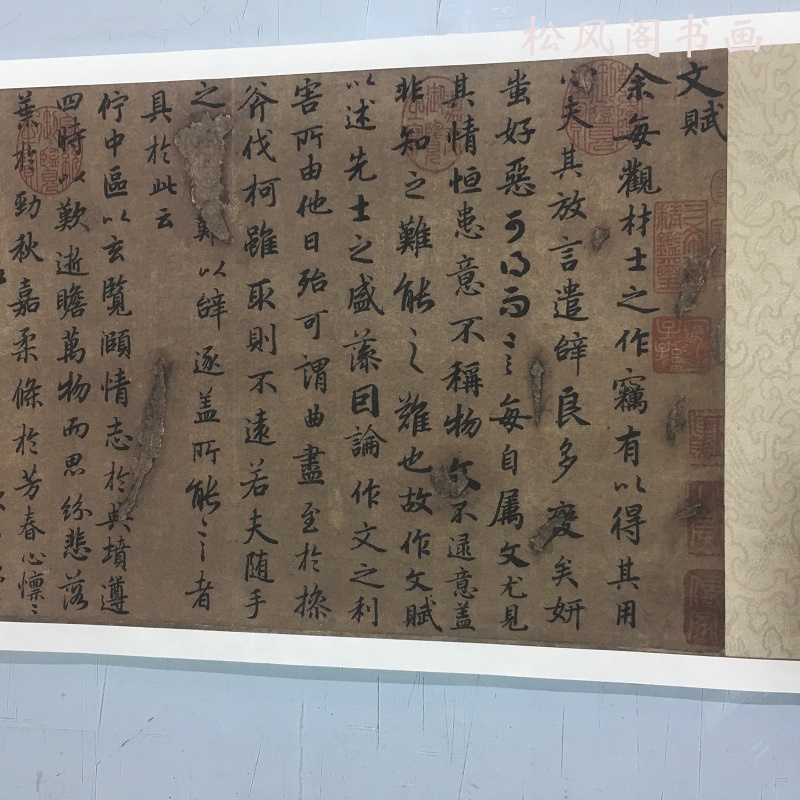 松风阁书画
文賦
余每觀材士之作竊有以得其用
心夫其放言遣辭良多變矣妍
蚩好惡可得而言每自屬文尤見
其情恒患意不稱物文不逮意蓋
非知之難能之難也故作文賦
以述先士之盛藻因論作文之利
害所由他日殆可謂曲盡至於操
斧伐柯雖取則不遠若夫随手
之難以辭逐盖所能言者
具於此云
佇中區以玄覽頤情志於典墳遵
四時以歎逝瞻萬物而思紛悲落
葉於勁秋嘉柔條於芳春心懍〻